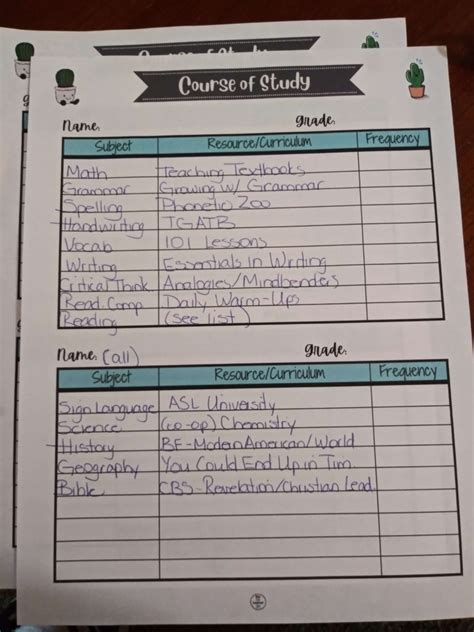 Course of Study
Course of Study
Name: grade:
Subject Resource/Curriculum Frequency
Math Teaching Textbooks
Grammar Growing w/ Grammar
Spelling Phonetic Zoo
Handwriting TGATB
Vocab 101 Lessons
Writing Essentials In Writing
Critical Think Analogies/Mindbenders
Read. Comp Daily Warm-Ups
Reading (see list)
Name: (all) grade:
Subject Resource/Curriculum Frequency
Sign Language ASL University
Science (co-op) Chemistry
History BF-Modern American/World
Geography You Could End Up in Tim.
Bible CBS-Revelation/Christian Lead.